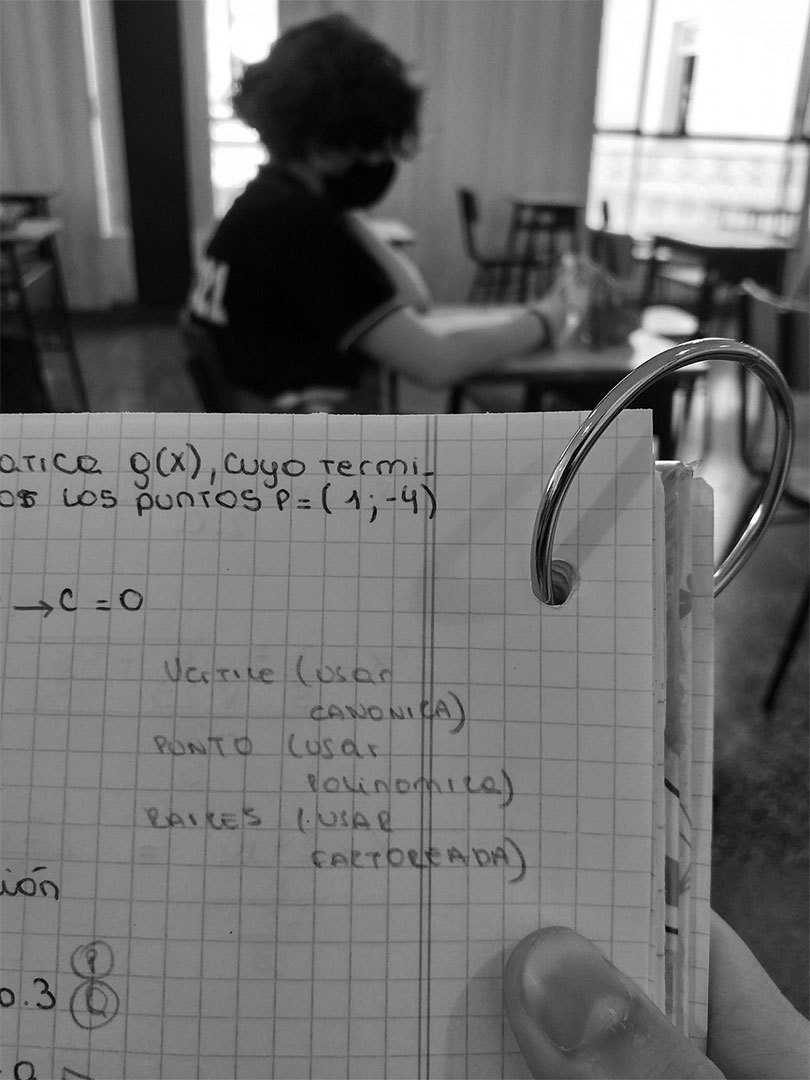 atica g(x), cuyo termi-
os los puntos P=(1;-4)
→C =0
Vertice (usar
CANONICA)
PUNTO (usar
Polinomica)
RAICES (.USAR
FACTOREADA)
ión
o.3
21